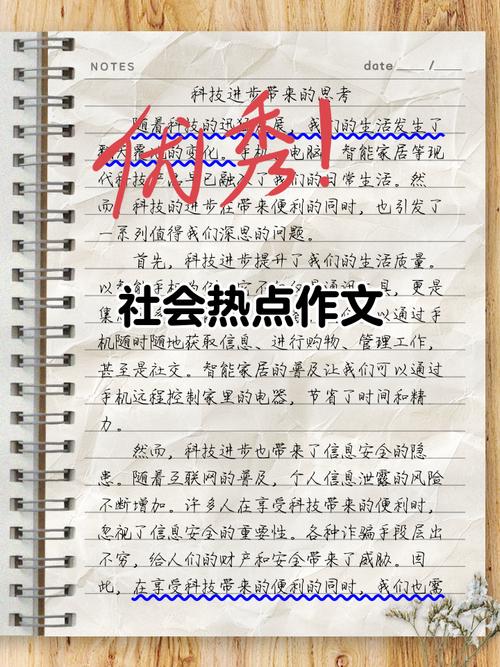 NOTES
date____/__
科技进步带来的思考
优秀!
随着科技的迅猛发展,我们的生活发生了
翻天覆地的变化。手机、电脑、智能家居等现
代科技产品已融入了我们的日常生活。然
而,科技的进步在带来便利的同时,也引发了
一系列值得我们深思的问题。
首先,科技进步提升了我们的生活质量。
以智能手机为例,它不仅仅是通讯工具,更是
社会热点作文
集 以通过手
机随时随地获取信息、进行购物、管理工作,
甚至是社交。智能家居的普及让我们可以通过
手机远程控制家里的电器,节省了时间和精
力。
然而,科技进步也带来了信息安全的隐
患。随着互联网的普及,个人信息泄露的风险
不断增加。许多人在享受科技带来的便利时,
忽视了信息安全的重要性。各种诈骗手段层出
不穷,给人们的财产和安全带来了威胁。因
此,在享受科技带来的便利的同时,我们也需